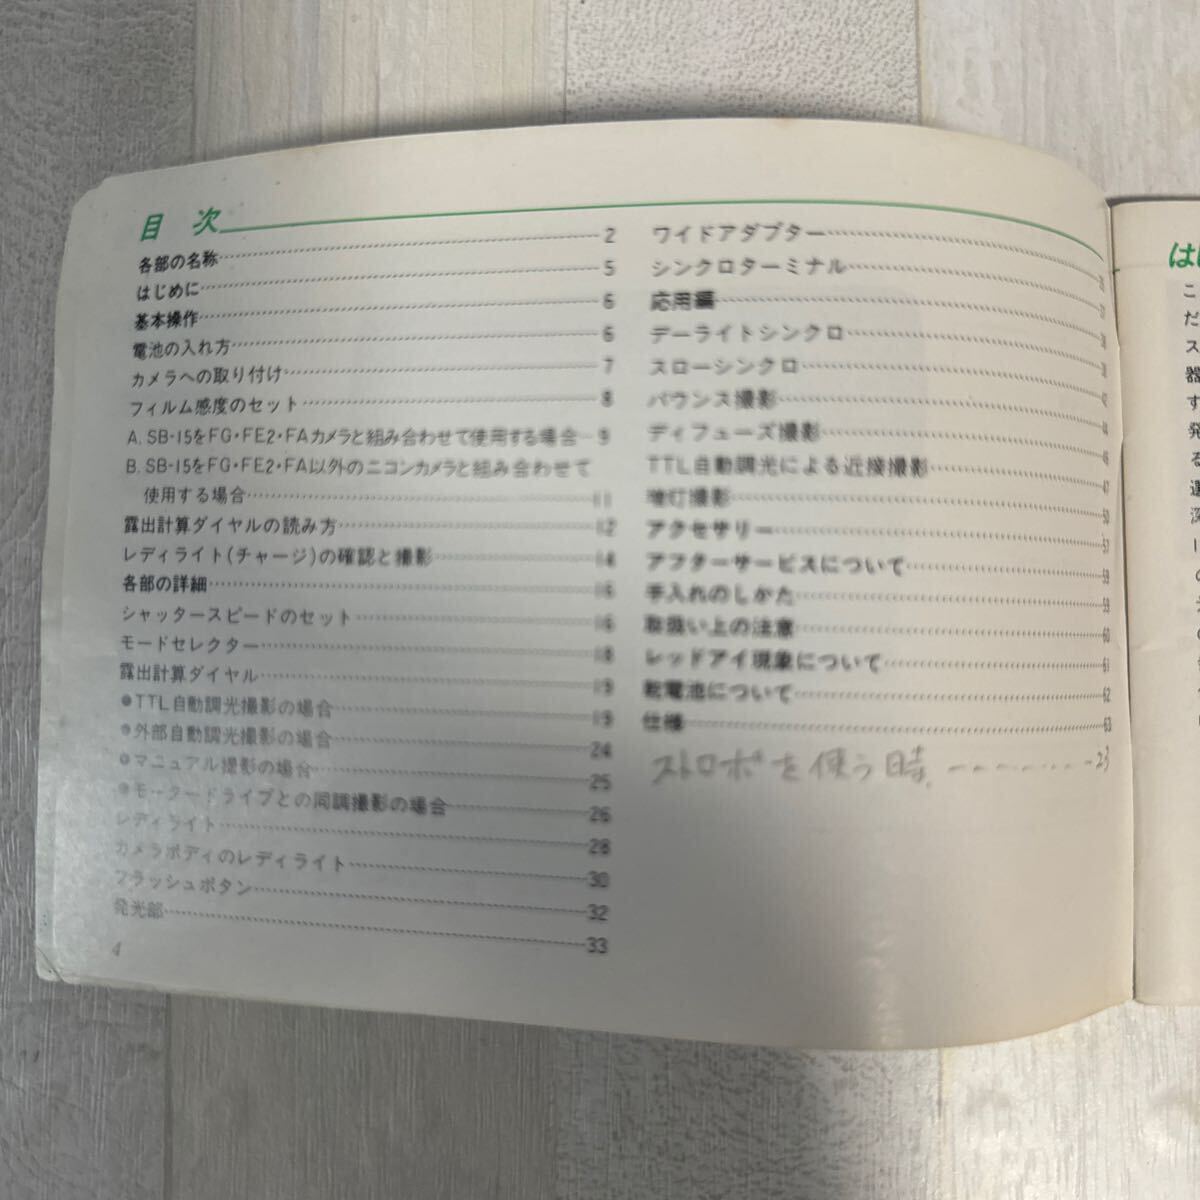 目次
各部の名称 2
はじめに 5
基本操作 6
電池の入れ方 6
カメラへの取り付け 7
フィルム感度のセット 8
A. SB-15をFG・FE2・FAカメラと組み合わせて使用する場合 9
B. SB-15をFG・FE2・FA以外のニコンカメラと組み合わせて
使用する場合 11
露出計算ダイヤルの読み方 12
レディライト(チャージ)の確認と撮影 14
各部の詳細 16
シャッタースピードのセット 16
モードセレクター 18
露出計算ダイヤル 19
●TTL自動調光撮影の場合 19
●外部自動調光撮影の場合 24
●マニュアル撮影の場合 25
●モータードライブとの同調撮影の場合 26
レディライト 28
カメラボディのレディライト 30
フラッシュボタン 32
発光部 33
4
ワイドアダプター
シンクロターミナル
応用編
デーライトシンクロ
スローシンクロ
バウンス撮影
ディフューズ撮影
TTL自動調光による近接撮影 47
増灯撮影 50
アクセサリー 57
アフターサービスについて 59
手入れのしかた 59
取扱い上の注意 60
レッドアイ現象について 61
乾電池について 62
仕様 63
ストロボを使う時. 23
は
こ
だ
ス
器
す
発
る
深